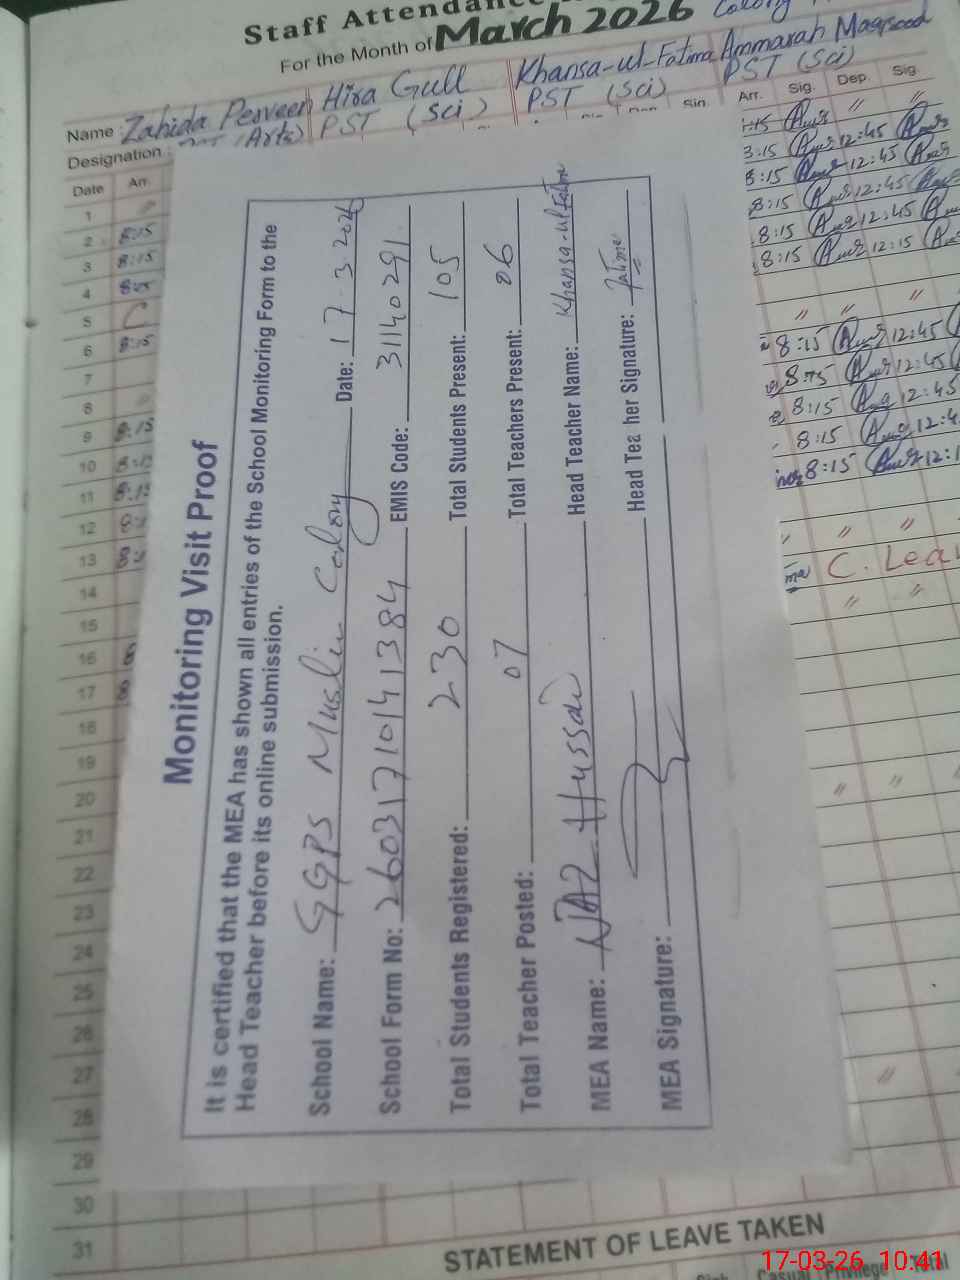 Staff Attendance
For the Month of March 2026 Colony
Name Zahida Perveen Hira Gull Khansa-ul-Fatima Ammarah Maqsood
Designation (Arts) PST (Sci) PST (Sci) PST (Sci)
Date Arr. Sin. Arr. Sig. Dep. Sig.
1
2 8:15
3 8:15
4
5 C
6 8:15
7
8
9 8:15
10 8:15
11 8:15
12
13
14
15
16
17
18
19
20
21
22
23
24
25
26
27
28
29
30
31
3:15 12:45
8:15 12:45
8:15 12:45
8:15 12:45
8:15 12:15
8:15 12:45
8:15 12:45
8:15 12:45
8:15 12:4
8:15 12:1
C. Lea
Monitoring Visit Proof
It is certified that the MEA has shown all entries of the School Monitoring Form to the
Head Teacher before its online submission.
School Name: GGPS Muslim Colony Date: 17.3.2026
School Form No: 26031710141384 EMIS Code: 31140291
Total Students Registered: 230 Total Students Present: 105
Total Teacher Posted: 07 Total Teachers Present: 06
MEA Name: NAZ Hussain Head Teacher Name: Khansa-ul Fatima
MEA Signature: Head Teacher Signature: Fatima
STATEMENT OF LEAVE TAKEN
Sick Casual Privilege Total
17-03-26 10:41